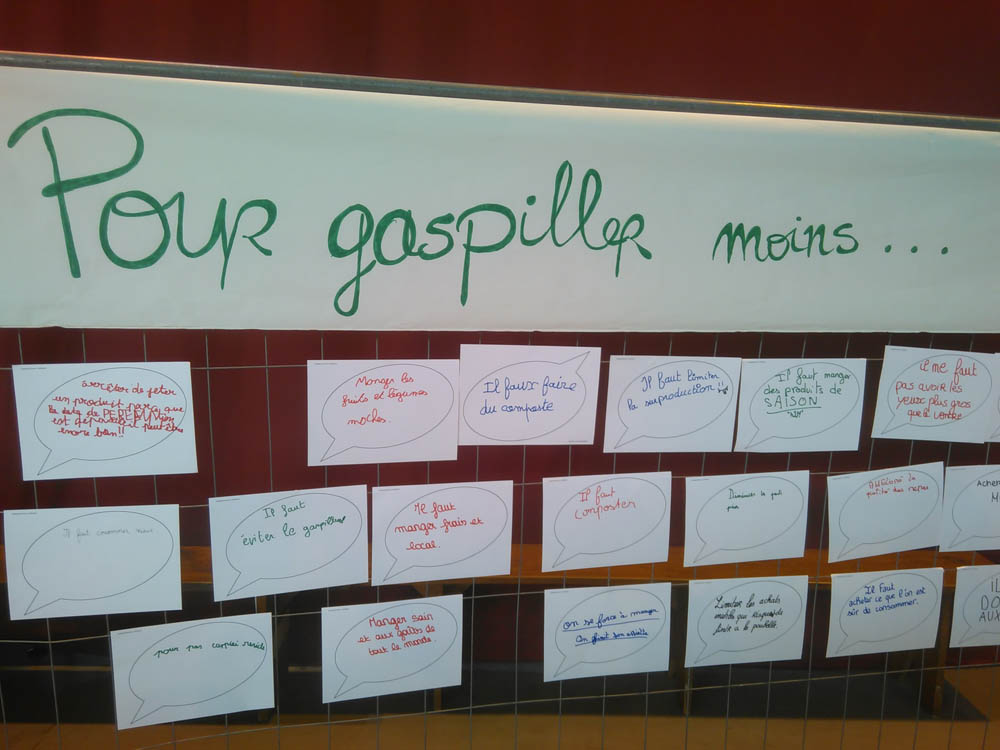 Pour gaspiller moins ...
arrêter de jeter
un produit parce que
la date de PEREMPTION
est dépassée il peut être
encore bon!!
Manger les
fruits et légumes
moches.
Il faux faire
du composte
Il faut limiter
la surproduction !!
Il faut manger
des produits de
SAISON
il me faut
pas avoir les
yeux plus gros
que le ventre
Il faut consommer mieux
Il faut
éviter le gaspillage
Il faut
manger frais et
local.
Il faut
composter
Diminuer le
pain
Améliorer la
qualité des repas
Acheter
M
pour pas
Manger sain
et aux goûts de
tout le monde.
on se force à manger
On finit son assiette
Limiter les achats
inutiles qui risquent de
finir à la poubelle.
Il faut
acheter ce que l'on est
sûr de consommer.
IL
DO
AUX